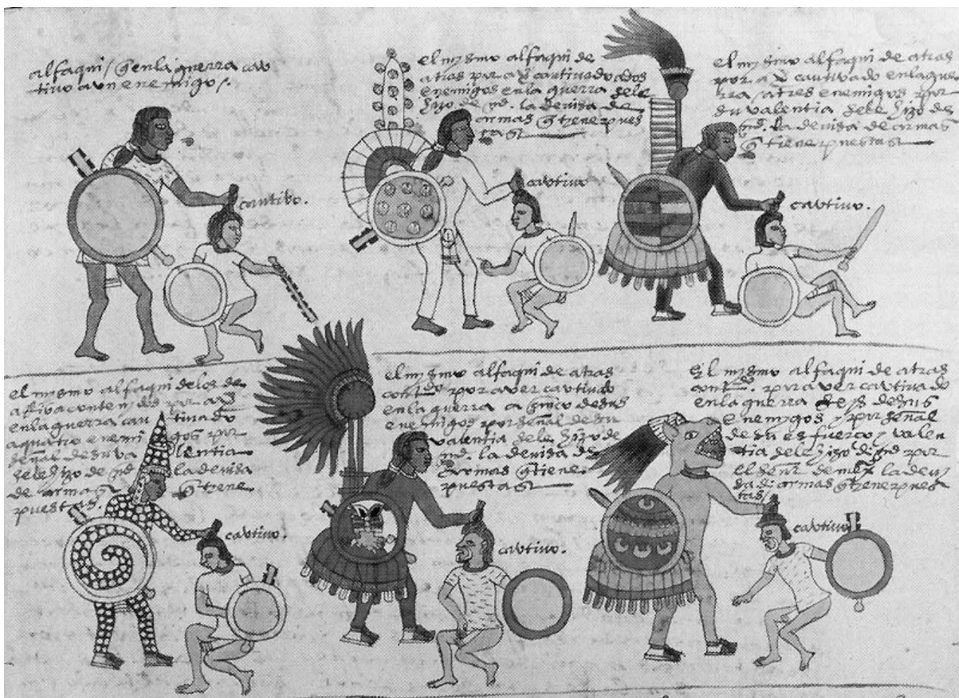 alfaqui / q̃ en la guerra cau
tivo a un enemigo /.
cautivo.
el mismo alfaqui de
atras por aver cautivado a dos
enemigos en la guerra se le
hizo de md. la devisa de
armas q̃ tiene pues
tas
cautivo
el mismo alfaqui de atras
por aver cautivado en la gue
rra / a tres enemigos por
su valentia se le hizo de
md. la devisa de armas
q̃ tiene puestas
cautivo.
el mismo alfaqui de los de
arriba contenidos por aver
en la guerra cautivado
a quatro enemigos por
señal de su valentia
se le hizo de md la devisa
de armas q̃ tiene
puestas
cautivo.
el mismo alfaqui de atras
contdo. por aver cautivado
en la guerra a cinco de sus
enemigos por señal de su
valentia se le hizo de
md. la devisa de
armas q̃ tiene
puestas
cautivo.
el mismo alfaqui de atras
contdo. por aver cautivado
en la guerra seys de sus
enemigos / por señal
de su esfuerço y valen
tia se le hizo de md por
el señor de mexco la devi
sa de armas q̃ tiene pues
tas
cautivo.